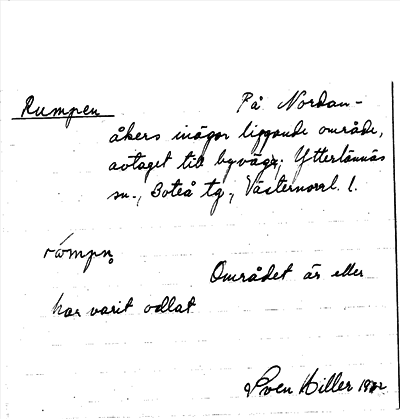 Rumpen På Nordan-
åkers inägor liggande område,
avtaget till byväga; Ytterlännäs
sn., Boteå tg., Västernorrl. l.
Området är eller
har varit odlat
Sven Hiller